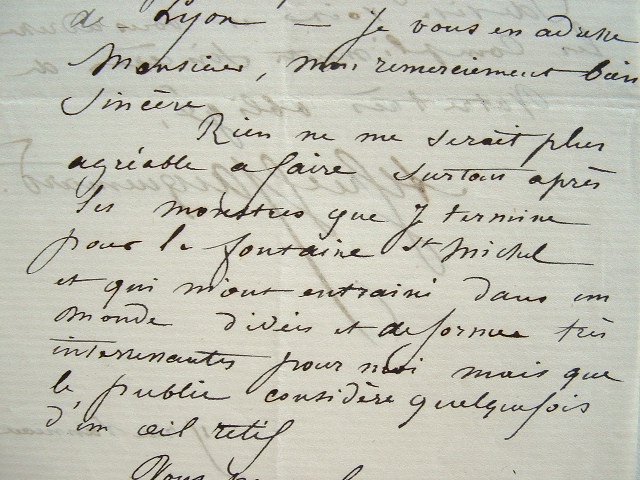 de Lyon — je vous en adresse
Monsieur, mon remerciement bien
sincère
Rien ne me serait plus
agréable a faire surtout après
les monstres que je termine
pour la fontaine St Michel
et qui m'ont entrainé dans un
monde d'idées et de formes très
interressantes pour moi mais que
le public considère quelquefois
d'un œil rétif
Vous